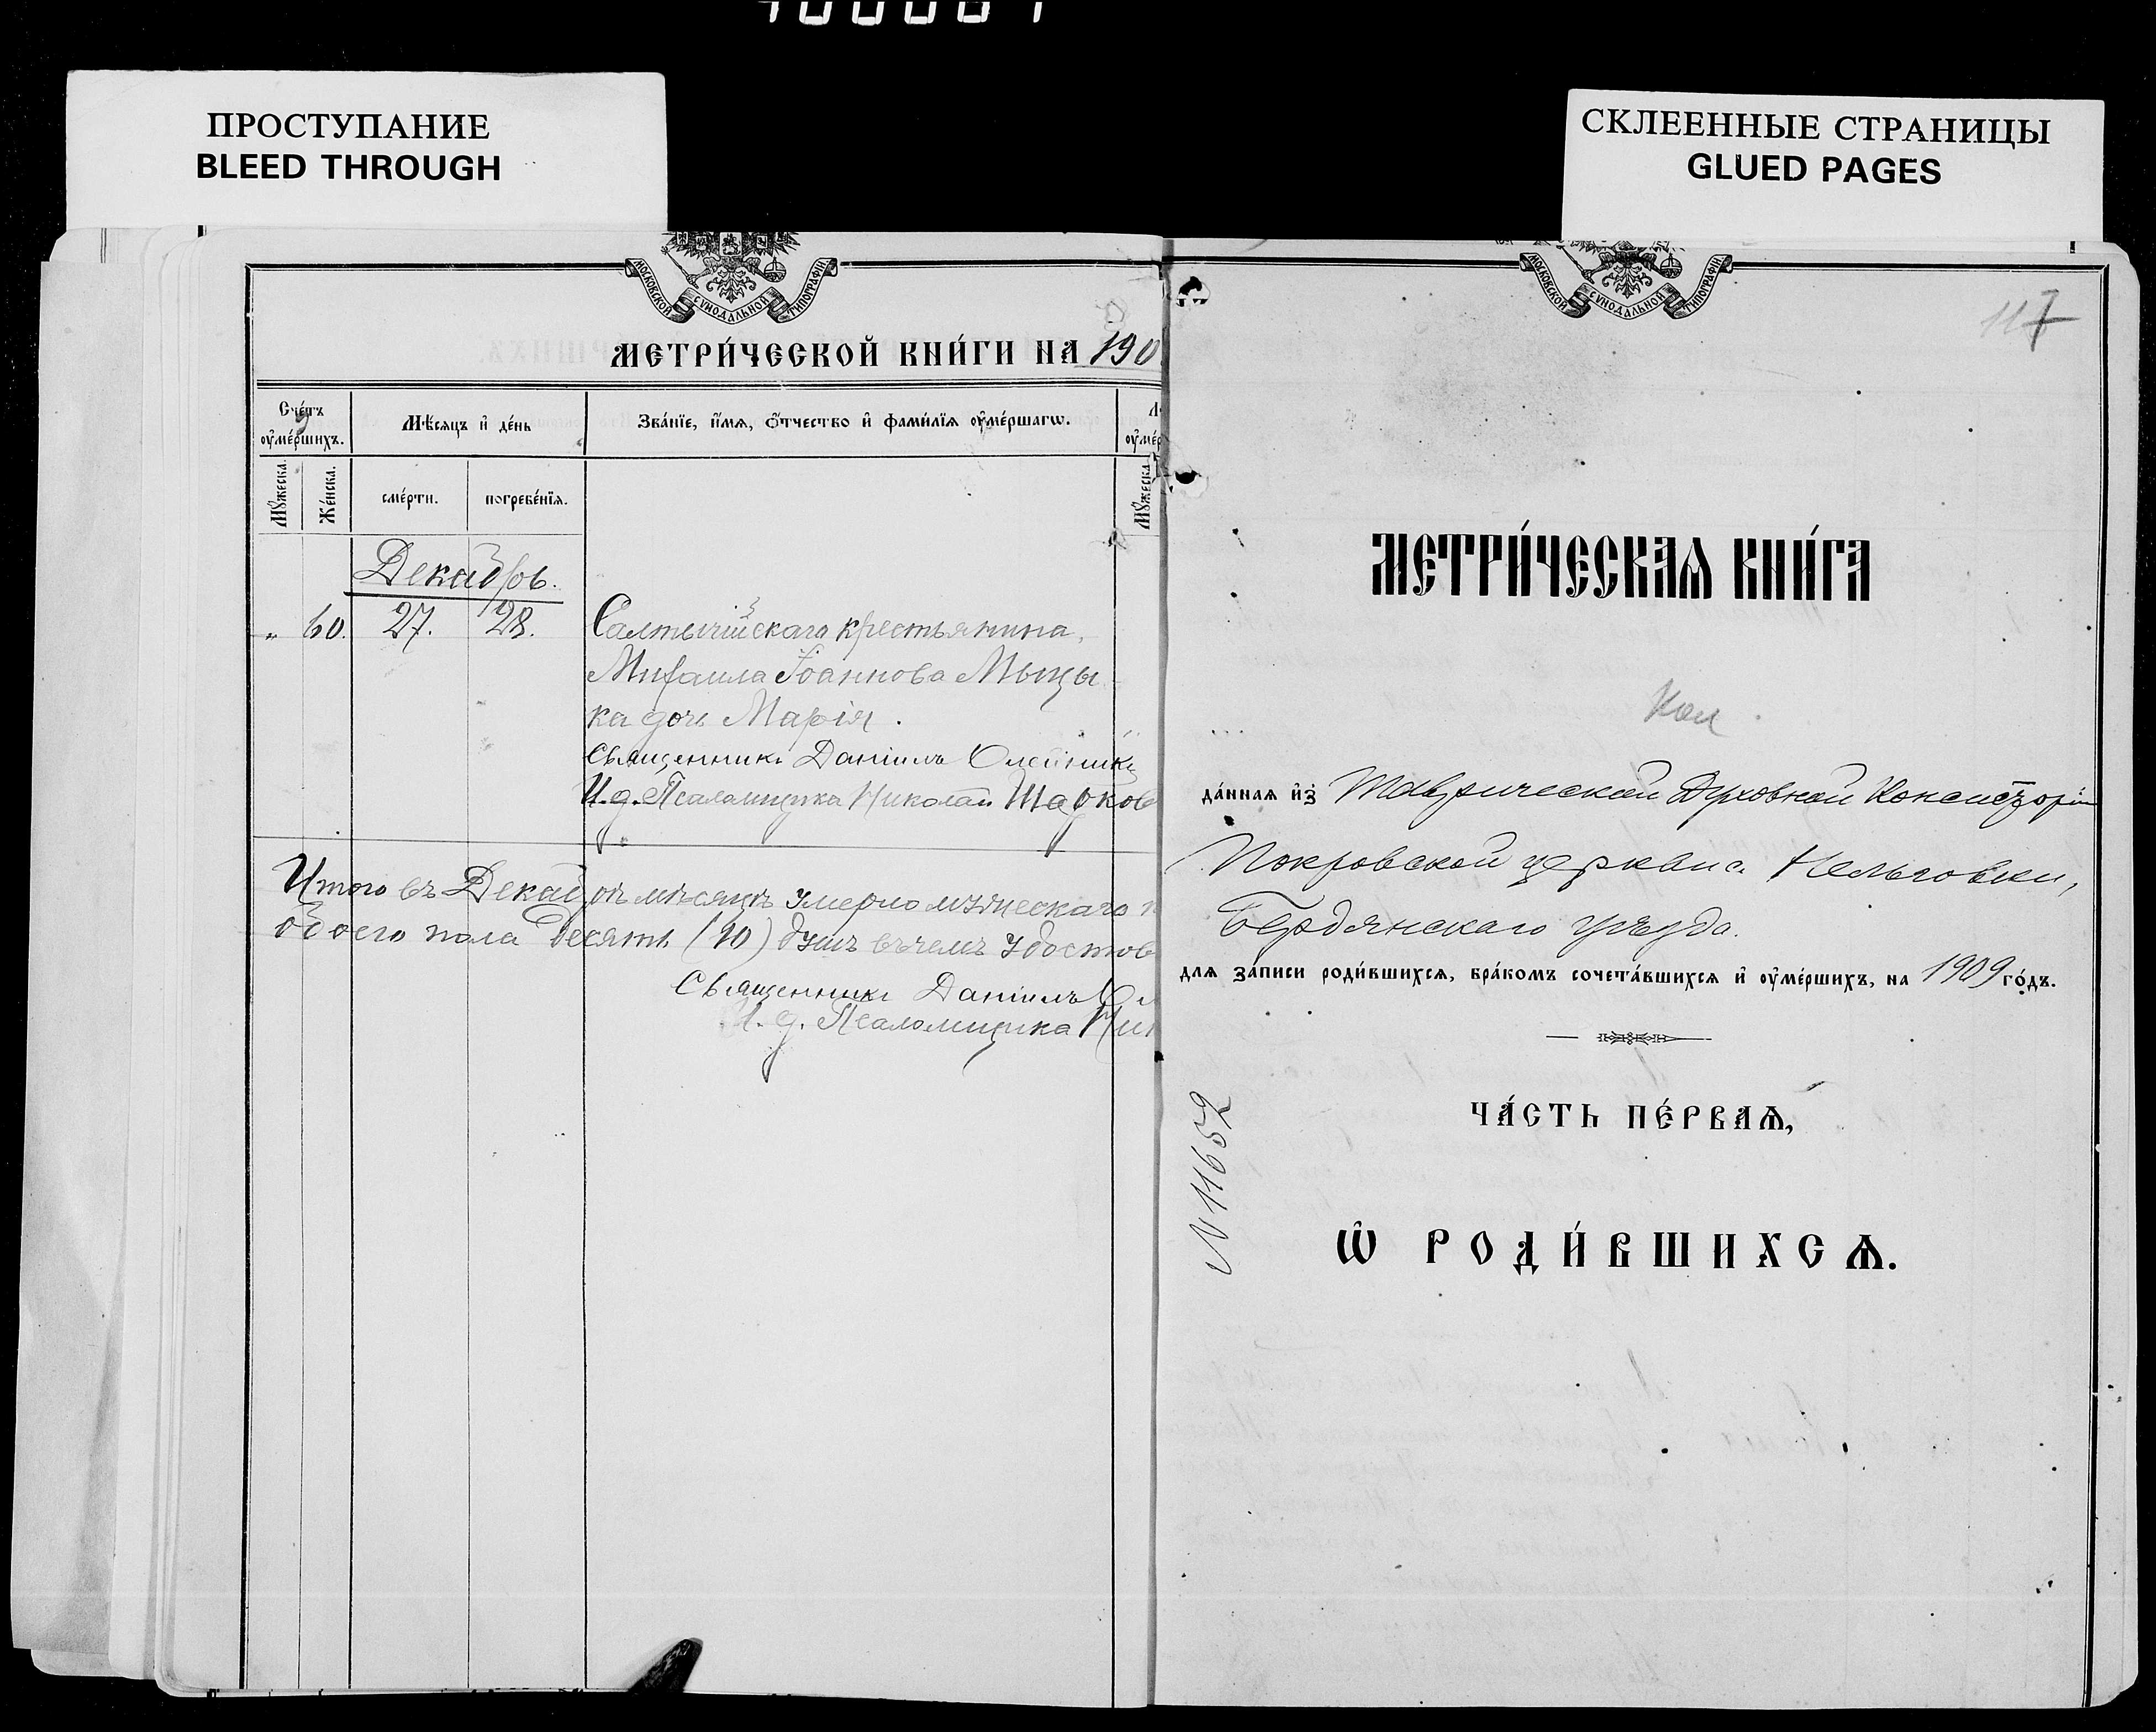 ПРОСТУПАНИЕ
BLEED THROUGH
СКЛЕЕННЫЕ СТРАНИЦЫ
GLUED PAGES
МОСКОВСКОЙ СѴНОДАЛЬНОЙ ТИПОГРАФІИ
МЕТРИ́ЧЕСКОЙ КНИ́ГИ НА 190
Сче́тъ ᲂу҆ме́ршихъ.
Мѣ́сяцъ и҆ де́нь
Зва́нїе, и҆́мѧ, ѻ҆́тчество и҆ фами́лїѧ ᲂу҆ме́ршагѡ.
Мꙋ́жеска.
Же́нска.
сме́рти.
погребе́нїѧ.
Мꙋ́жеска
Декабрь.
„ 60. 27. 28. Салтычійскаго крестьянина,
Михаила Іоаннова Мыцы
ка дочь Марія.
Священникъ Даніилъ Олейникъ
И.д. Псаломщика Николай
Итого въ Декабрѣ мѣсяцѣ умерло мужескаго
обоего пола десять (10) душъ въ чемъ удостов
Священникъ Даніилъ Ол
И. д. Псаломщика Ник
МОСКОВСКОЙ СѴНОДАЛЬНОЙ ТИПОГРАФІИ
117
МЕТРИ́ЧЕСКАѦ КНИ́ГА
да́ннаѧ и҆з̾ Таврической Духовной Консисторіи
Покровской церкви с. Нельговки,
Бердянскаго уѣзда.
для за́писи роди́вшихсѧ, бра́комъ сочета́вшихсѧ и҆ ᲂу҆ме́ршихъ, на 1909 го́дъ.
N 11652
ЧА́СТЬ ПЕ́РВАѦ,
Ѡ҆ РОДИ́ВШИХСѦ.